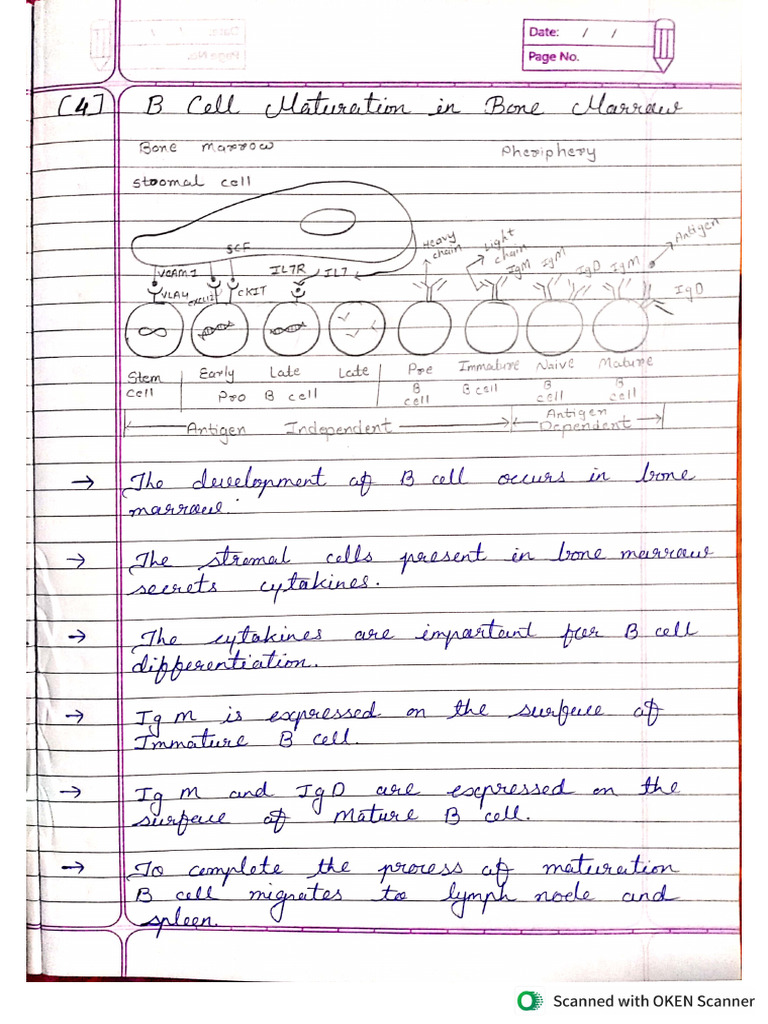 Date: / /
Page No.
[4] B Cell Maturation in Bone Marrow
Bone marrow Pheriphery
Stromal cell
SCF
Heavy chain
Light chain
Antigen
VCAM1 IL7R IL7
IgM IgM IgD IgM IgD
VLA4 CXCL12 CKIT
Stem cell
Early Late Late
Pro B cell
Pre B cell
Immature B cell
Naive B cell
Mature B cell
Antigen Independent
Antigen Dependent
→ The development of B cell occurs in bone
marrow.
→ The stromal cells present in bone marrow
secrets cytokines.
→ The cytokines are important for B cell
differentiation.
→ IgM is expressed on the surface of
Immature B cell.
→ IgM and IgD are expressed on the
surface of Mature B cell.
→ To complete the process of maturation
B cell migrates to lymph node and
spleen.
Scanned with OKEN Scanner